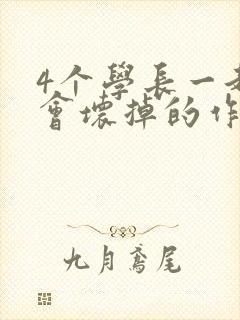 4个學長一
會壞掉的作
九月鳶尾